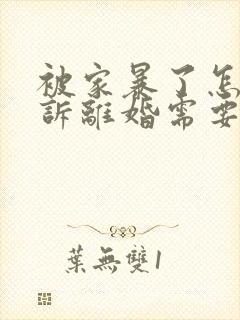 被家暴了怎
訴離婚需要
葉無雙1